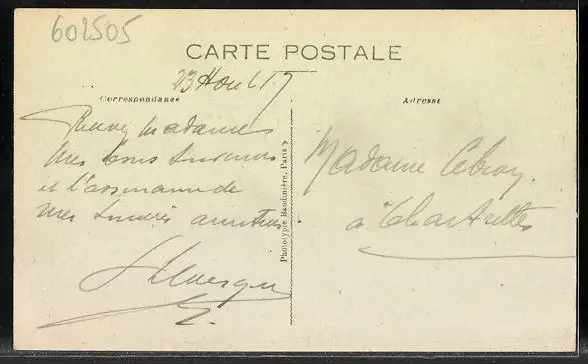 602505
CARTE POSTALE
23 Août 17
Correspondance
Adresse
Madame
Mes bons souvenirs
et l'assurance de
mes sincères amitiés
Phototypie Baudinière, Paris
Madame Lebray
à Chartrettes